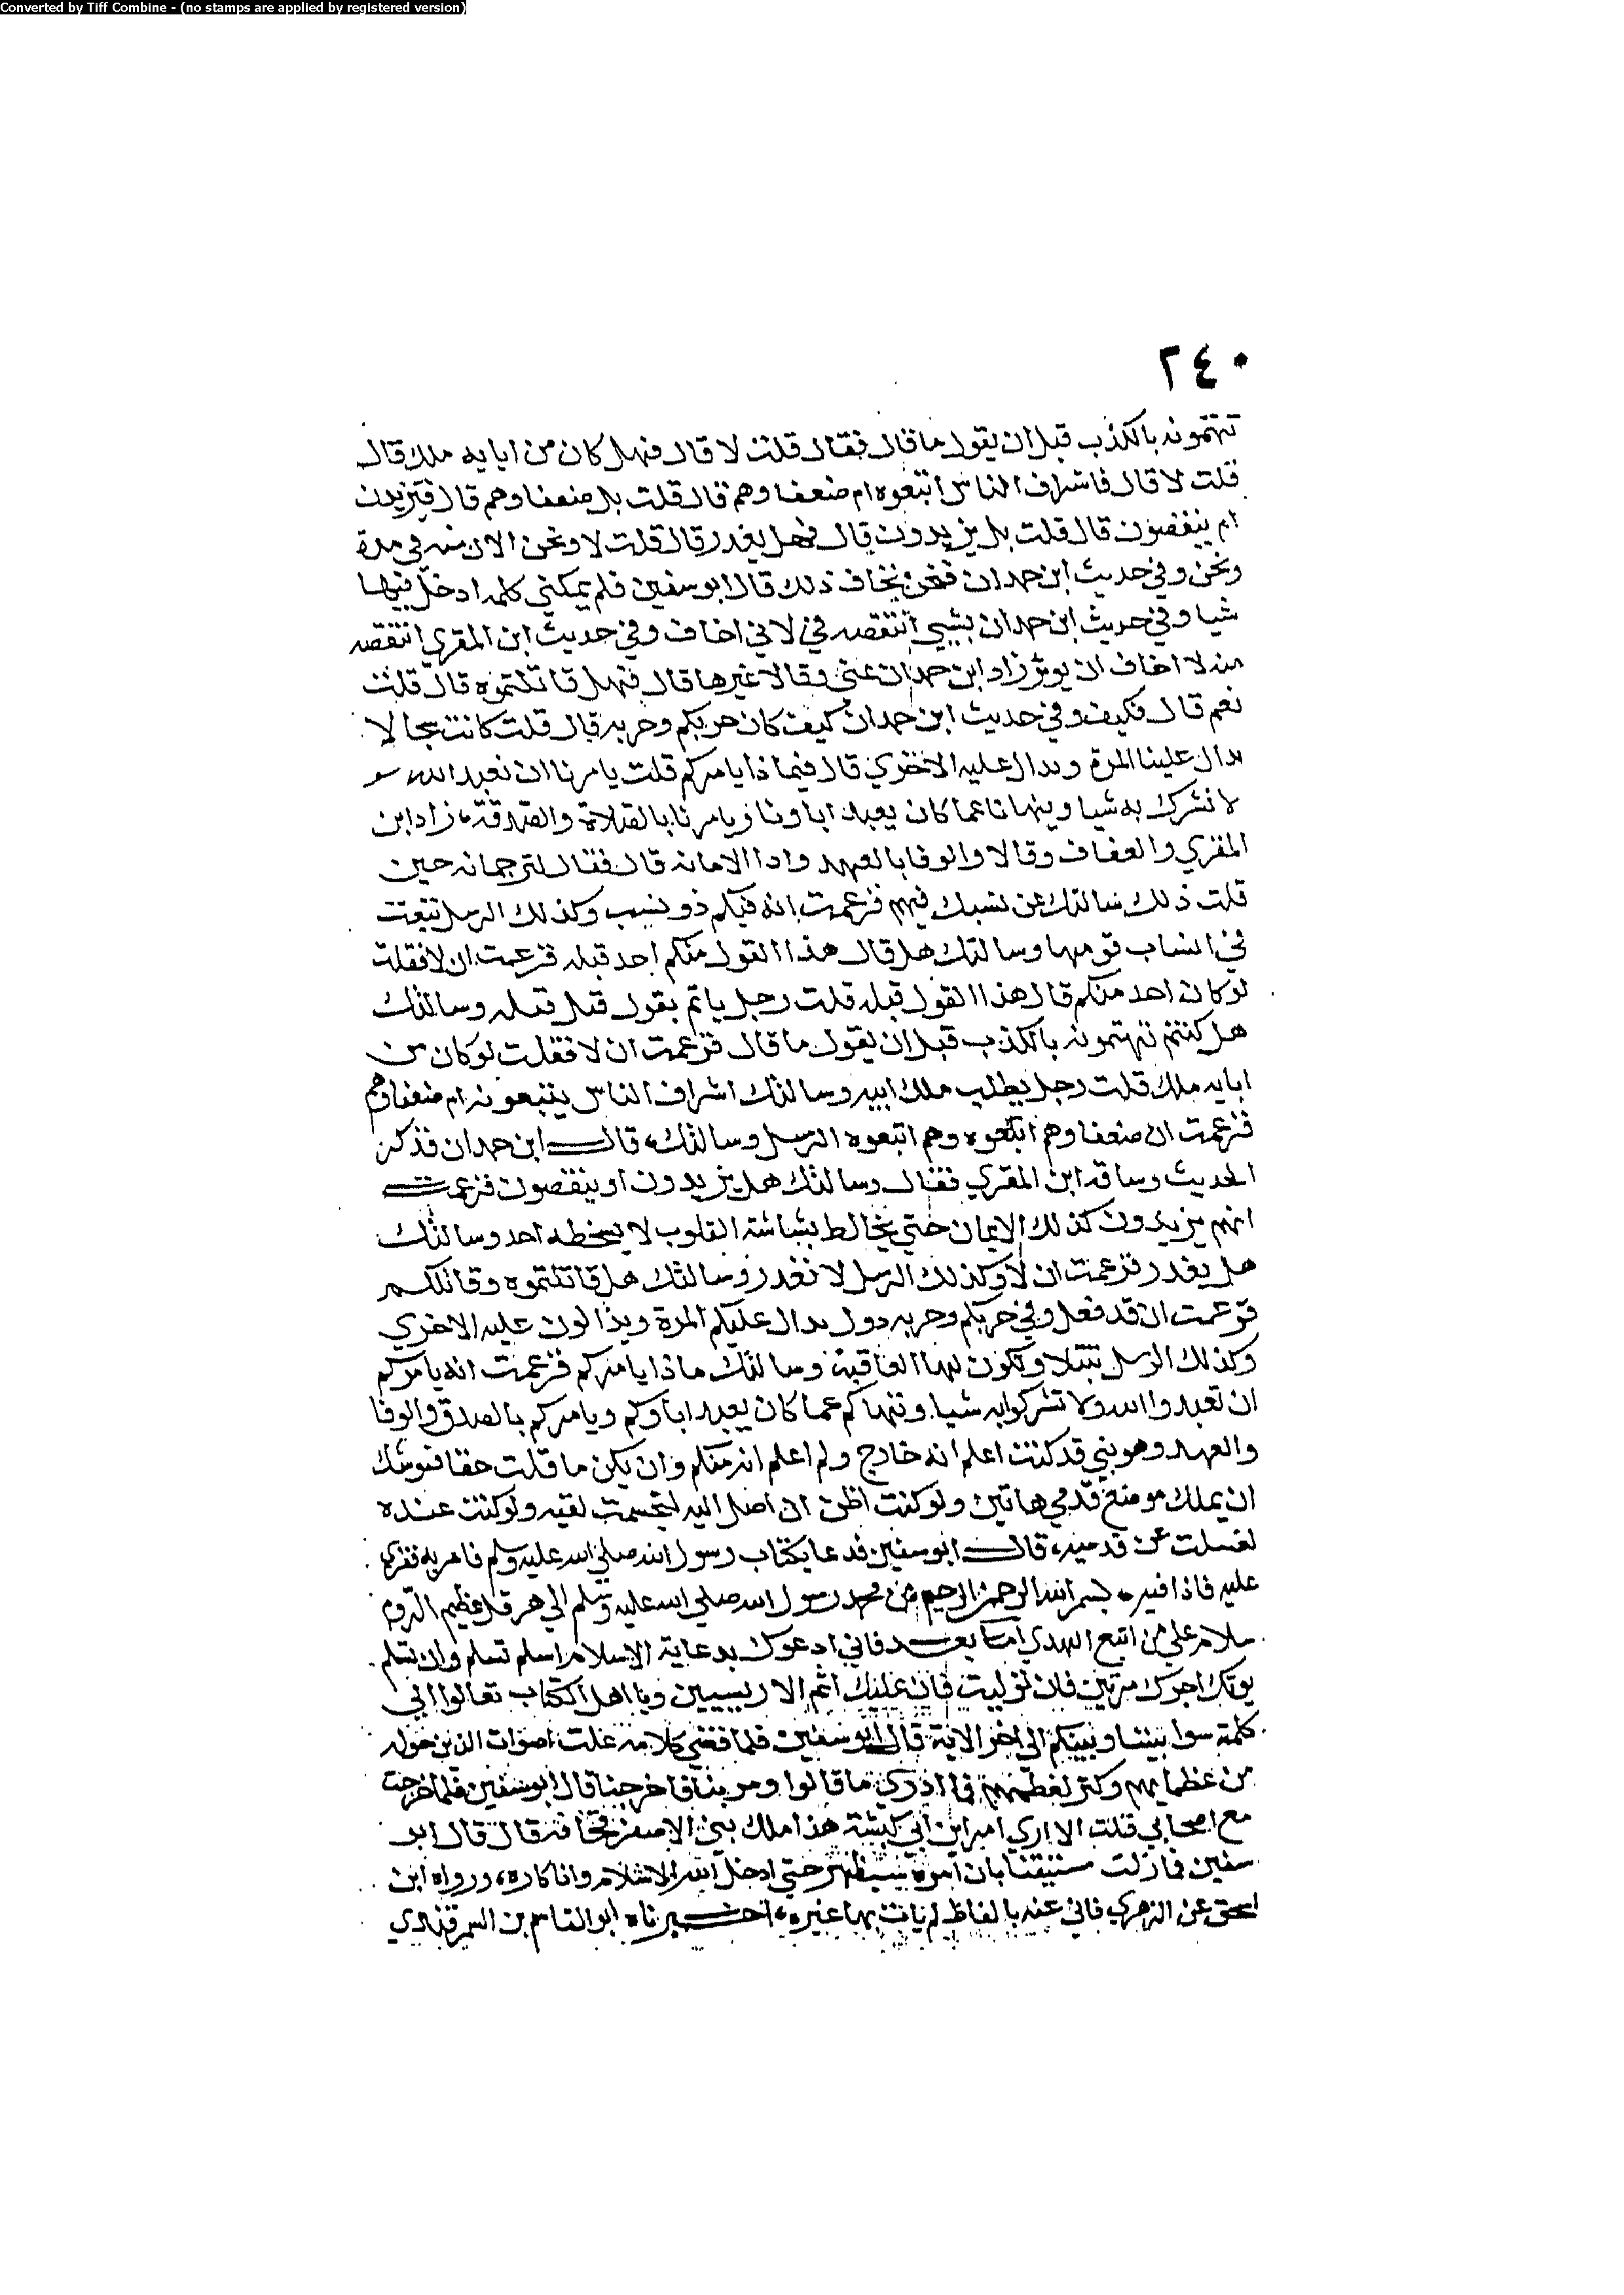 Converted by Tiff Combine - (no stamps are applied by registered version)
٢٤٠
تتهمونه بالكذب قبل ان يقول ما قال فقال قلت لا قال فهل كان من ابايه ملك قال
قلت لا قال فاشراف الناس اتبعوه ام ضعفاوهم قال قلت بل ضعفاوهم قال فيزيدون
ام ينقصون قال قلت بل يزيدون قال فهل يغدر قال قلت لا ونحن الان منه في مدة
ونحن وفي حديث ابن حمدان فنحن نخاف ذلك قال ابو سفين فلم يمكني كلمه ادخل فيها
شيا وفي حديث ابن حمدان بشي انتقصه في لاني اخاف وفي حديث ابن المقري انتقصه
منه لا اخاف ان يوثر زاد ابن حمدان عني وقالا غيرها قال فهل قاتلتموه قال قلت
نعم قال فكيف وفي حديث ابن حمدان كيف كان حربكم وحربه قال قلت كانت سجالا
يدال علينا المرة ويدال عليه الاخري قال فيما ذا يامركم قلت يامرنا ان نعبد الله
لا نشرك به شيا وينهانا عما كان يعبد اباونا ويامرنا بالصلاة والصدقة زاد ابن
المقري والعفاف وقالا والوفا بالعهد وادا الامانه قال فقال لترجمانه حين
قلت ذلك سالتك عن نسبك فيهم فزعمت انه فيكم ذو نسب وكذلك الرسل تبعث
في انساب قومها وسالتك هل قال هذا القول منكم احد قبله فزعمت ان لا فقلت
لو كان احد منكم قال هذا القول قبله قلت رجل ياتم بقول قيل قبله وسالتك
هل كنتم تتهمونه بالكذب قبل ان يقول ما قال فزعمت ان لا فقلت لو كان من
ابايه ملك قلت رجل يطلب ملك ابيه وسالتك اشراف الناس يتبعونه ام ضعفاوهم
فزعمت ان ضعفاوهم اتبعوه وهم اتبعوه الرسل وسالتك قال ابن حمدان فذكر
الحديث وساقه ابن المقري فقال وسالتك هل يزيدون او ينقصون فزعمت
انهم يزيدون كذلك الايمان حتي يخالط بشاشة القلوب لا يسخطه احد وسالتك
هل يغدر فزعمت ان لا وكذلك الرسل لا تغدر وسالتك هل قاتلتموه وقاتلكم
فزعمت ان قد فعل وفي حربكم وحربه دول يدال عليكم المرة ويدالون عليه الاخري
وكذلك الرسل تبتلا وتكون لها العاقبة وسالتك ماذا يامركم فزعمت انه يامركم
ان تعبدوا الله ولا تشركوا به شيا وينهاكم عما كان يعبد اباوكم ويامركم بالصدق والوفا
والعهد وهو نبي قد كنت اعلم انه خارج ولم اعلم انه منكم وان يكن ما قلت حقا فيوشك
ان يملك موضع قدمي هاتين ولو كنت اظن ان اصل اليه لتجشمت لقيه ولو كنت عنده
لغسلت عن قدميه قال ابو سفين فدعا بكتاب رسول الله صلي الله عليه وسلم فامر به فقري
عليه فاذا فيه بسم الله الرحمن الرحيم من محمد رسول الله صلي الله عليه وسلم الي هرقل عظيم الروم
سلام علي من اتبع الهدي اما بعد فاني ادعوك بدعاية الاسلام اسلم تسلم وان تسلم
يوتك اجرك مرتين فان توليت فان عليك اثم الاريسيين ويا اهل الكتاب تعالوا الي
كلمة سوا بيننا وبينكم الي اخر الاية قال ابو سفين فلما قضي كلامه علت اصوات الذين حوله
من عظمايهم وكثر لغطهم فما ادري ما قالوا ومر بنا فاخرجنا قال ابو سفين فلما خرجت
مع اصحابي قلت الا اري امر ابن ابي كبشة هذا ملك بني الاصفر يخافه قال قال ابو
سفين فما زلت مستيقنا بان امره سيظهر حتي ادخل الله الاسلام وانا كاره ورواه ابن
اسحق عن الزهري فاتي عنه بالفاظ لم يات بها غيره اخبرناه ابو القاسم بن السمرقندي